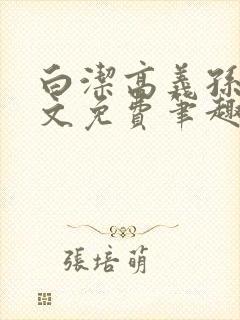 白潔高義孫
文免費筆趣
張培萌